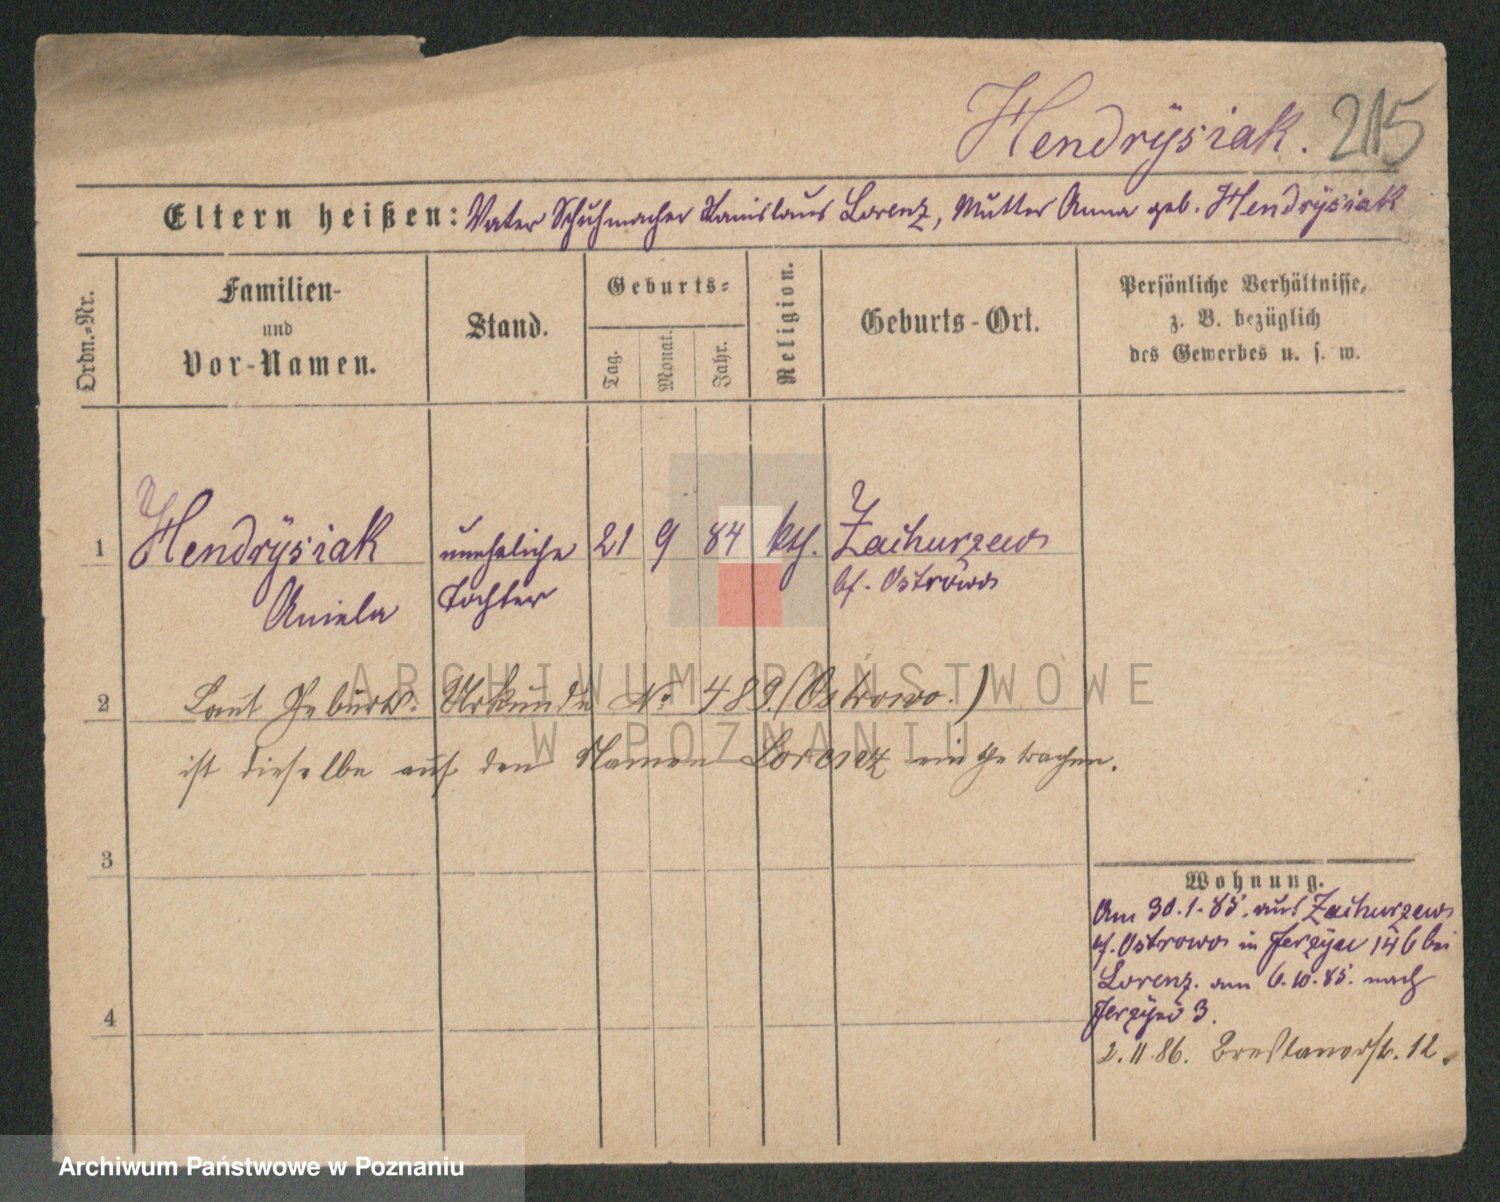 Hendrÿsiak. 215
Eltern heißen: Vater Schuhmacher Stanislaus Lorenz, Mutter Anna geb. Hendrÿsiak
Ordn.-Nr.
Familien-
und
Vor-Namen.
Stand.
Geburts-
Tag.
Monat.
Jahr.
Religion.
Geburts-Ort.
Persönliche Verhältnisse,
z. B. bezüglich
des Gewerbes u. s. w.
1 Hendrÿsiak uneheliche 21 9 84 kth. Zacharzew
Aniela Tochter bf. Ostrowo
2 Laut Geburts-Urkunde No 489 (Ostrowo.)
ist dieselbe auf den Namen Lorenz eingetragen.
3
Wohnung.
Am 30.1.85. aus Zacharzew
bf. Ostrowo in Jerzyce 146 bei
Lorenz. am 6.10.85. nach
4 Jerzyce 3.
2.11.86. Breslauerstr. 12.
ARCHIWUM PAŃSTWOWE
W POZNANIU
Archiwum Państwowe w Poznaniu